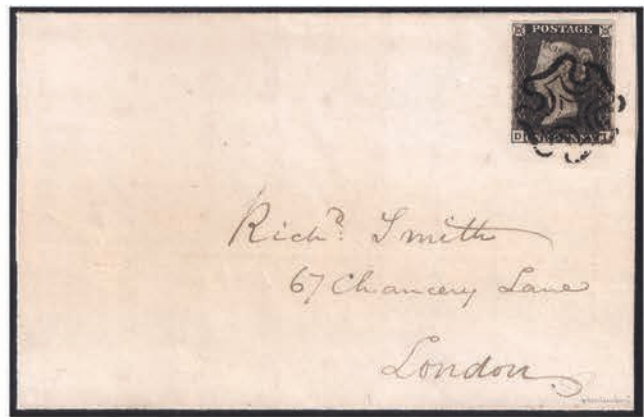 POSTAGE
D ONE PENNY I
Rich.d Smith
67 Chancery Lane
London